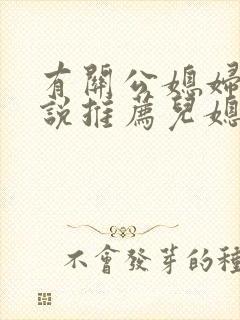 有關公媳婦
說推薦兒媳
不會發芽的種